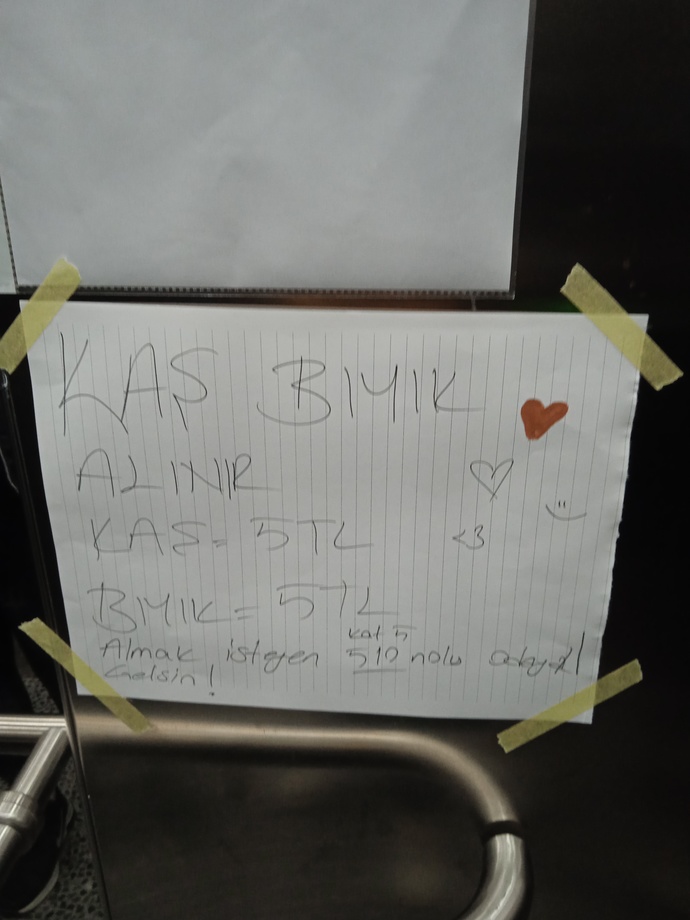 KAŞ BIYIK
ALINIR
KAŞ = 5 TL
<3
BIYIK = 5 TL
kat 5
Almak isteyen 510 nolu odaya
Gelsin!